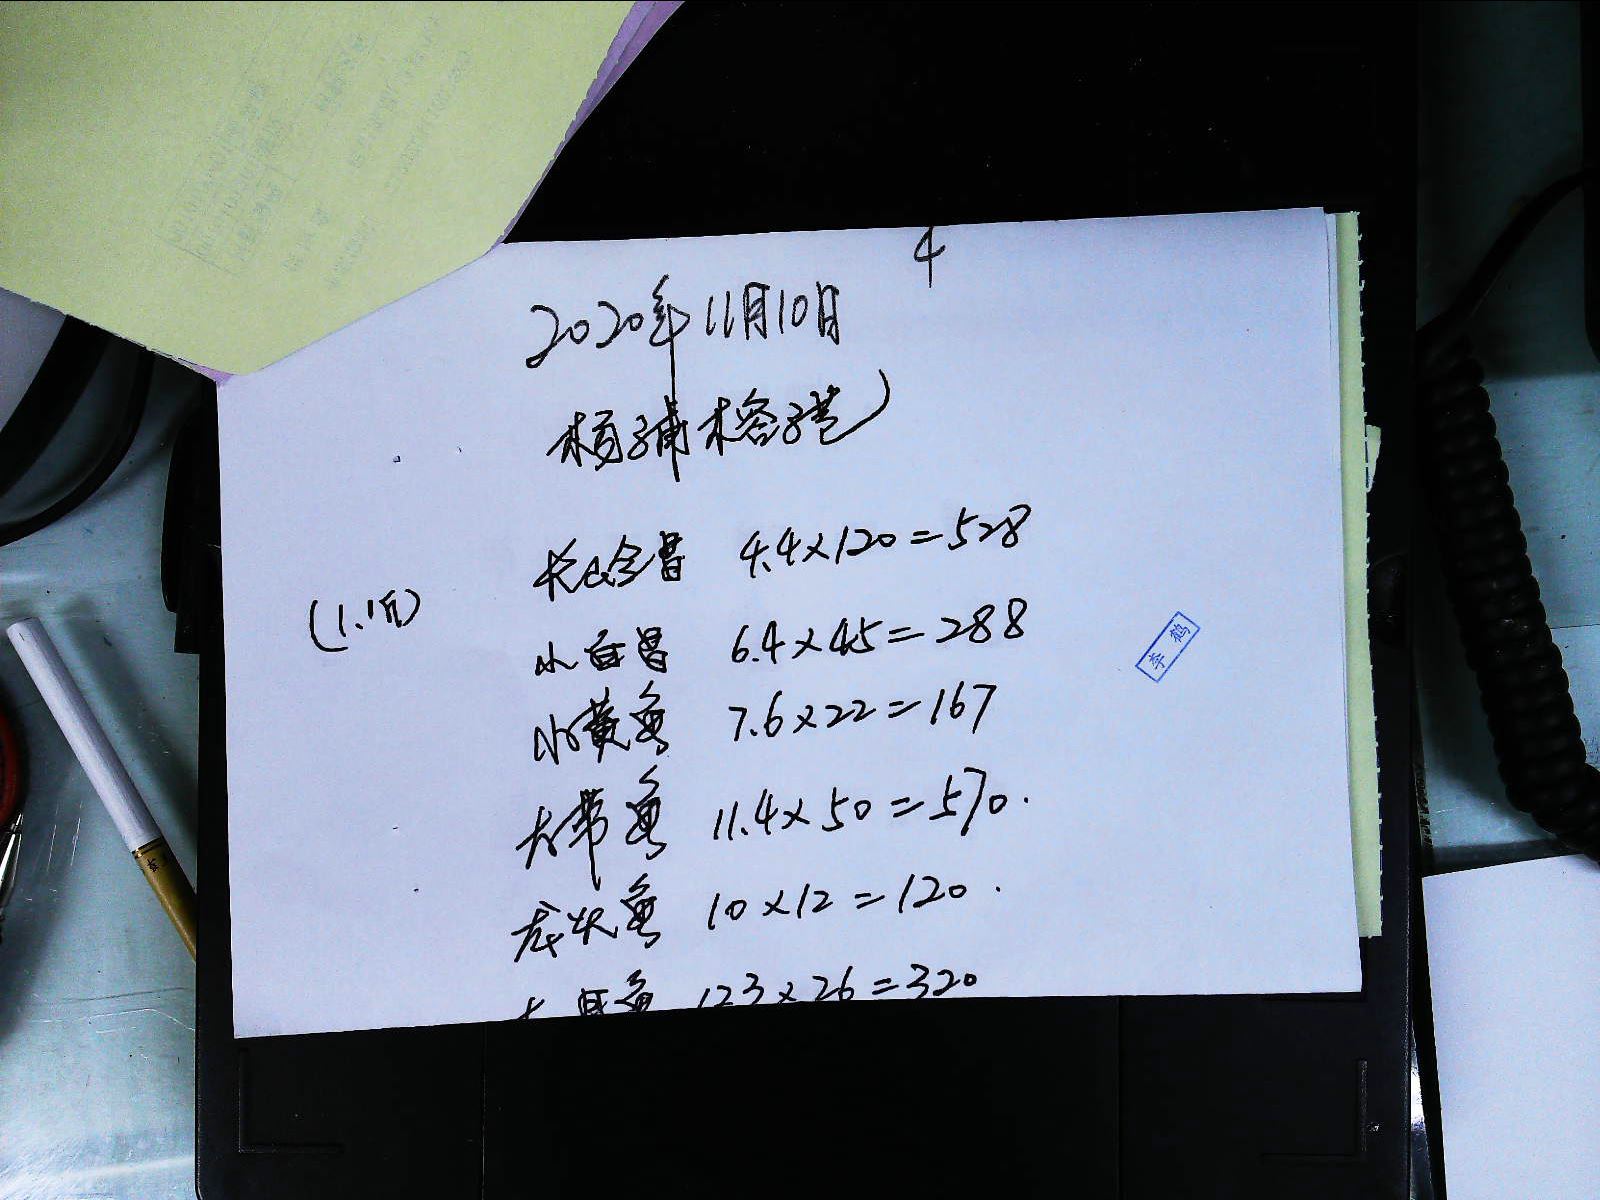 4
2020年11月10日
杨浦榕港
长山仓昌 4.4×120=528
(1.1斤)
小白昌 6.4×45=288
小黄鱼 7.6×22=167
李鹤
大带鱼 11.4×50=570.
龙头鱼 10×12=120.
鱼 12.3×26=320